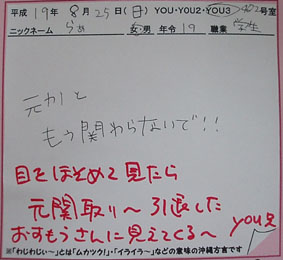 平成 19年 8月 25日(日) YOU・YOU2・YOU3 402号室
ニックネーム らぁ 女・男 年令 19 職業 学生
元カレと
もう関わらないで!!
目をほそめて見たら
元関取り〜引退した
おすもうさんに見えてくる〜 you兄
※「わじわじぃ〜」とは「ムカツク!」・「イライラ〜」などの意味の沖縄方言です